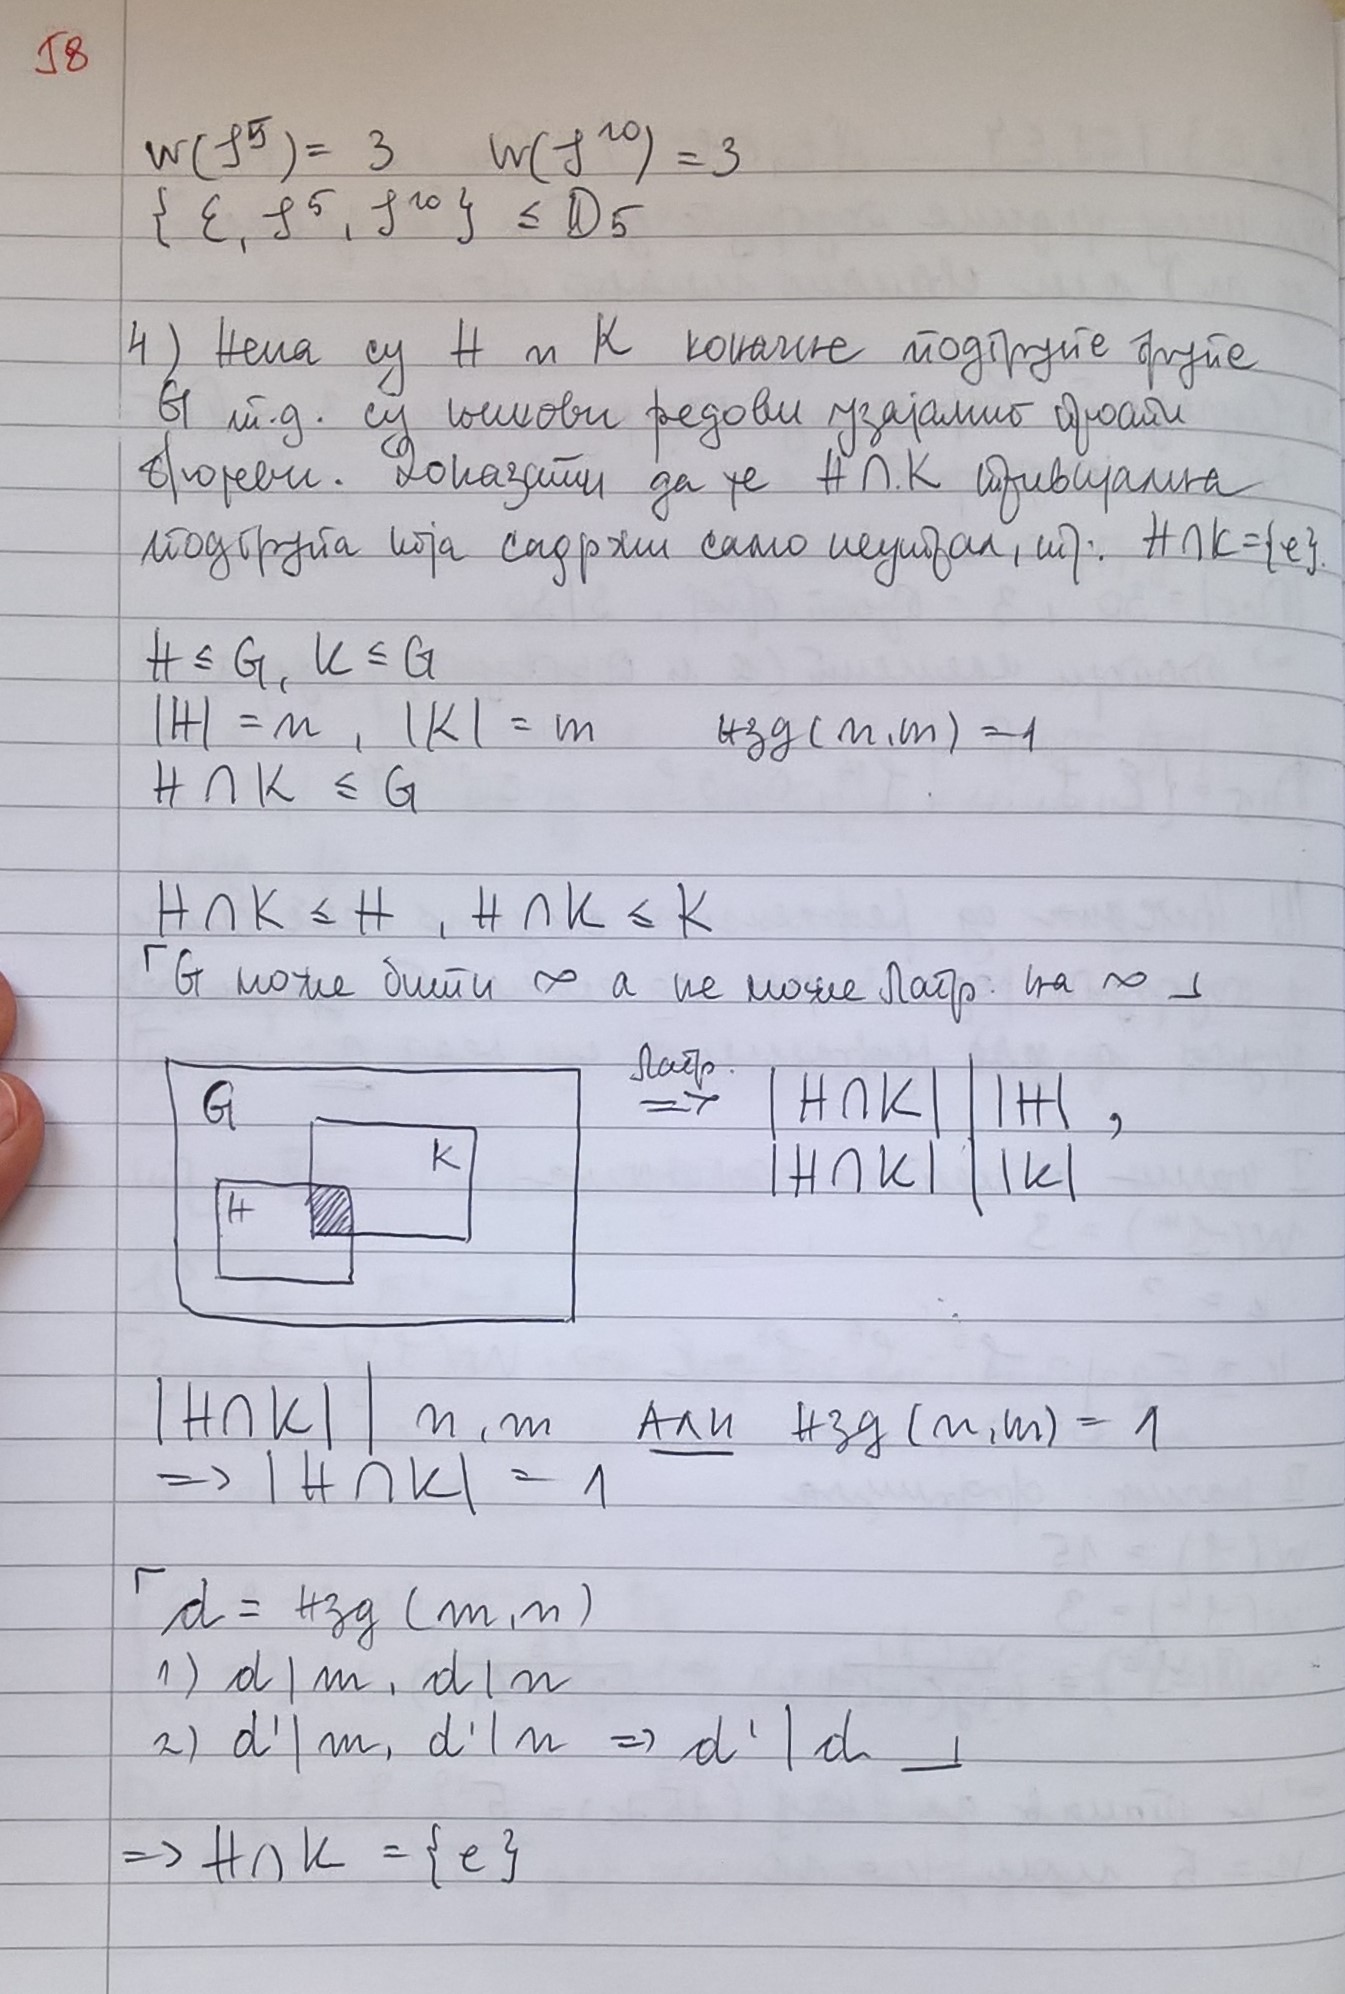 58
w(ρ⁵) = 3 w(ρ¹⁰) = 3
{ε, ρ⁵, ρ¹⁰} ≤ D₅
4) Нека су H и K коначне подгрупе групе
G т.д. су њихови редови узајамно прости
бројеви. Доказати да је H∩K тривијална
подгрупа која садржи само неутрал, тј. H∩K={e}.
H ≤ G, K ≤ G
|H| = n, |K| = m нзд(n,m) = 1
H∩K ≤ G
H∩K ≤ H, H∩K ≤ K
⌈G може бити ∞ а не може Лагр. на ∞ ⌋
G
K
H
Лагр.
=> |H∩K| | |H|,
|H∩K| | |K|
|H∩K| | n,m АЛИ нзд(n,m) = 1
=> |H∩K| = 1
⌈d = нзд(m,n)
1) d|m, d|n
2) d'|m, d'|n => d'|d ⌋
=> H∩K = {e}